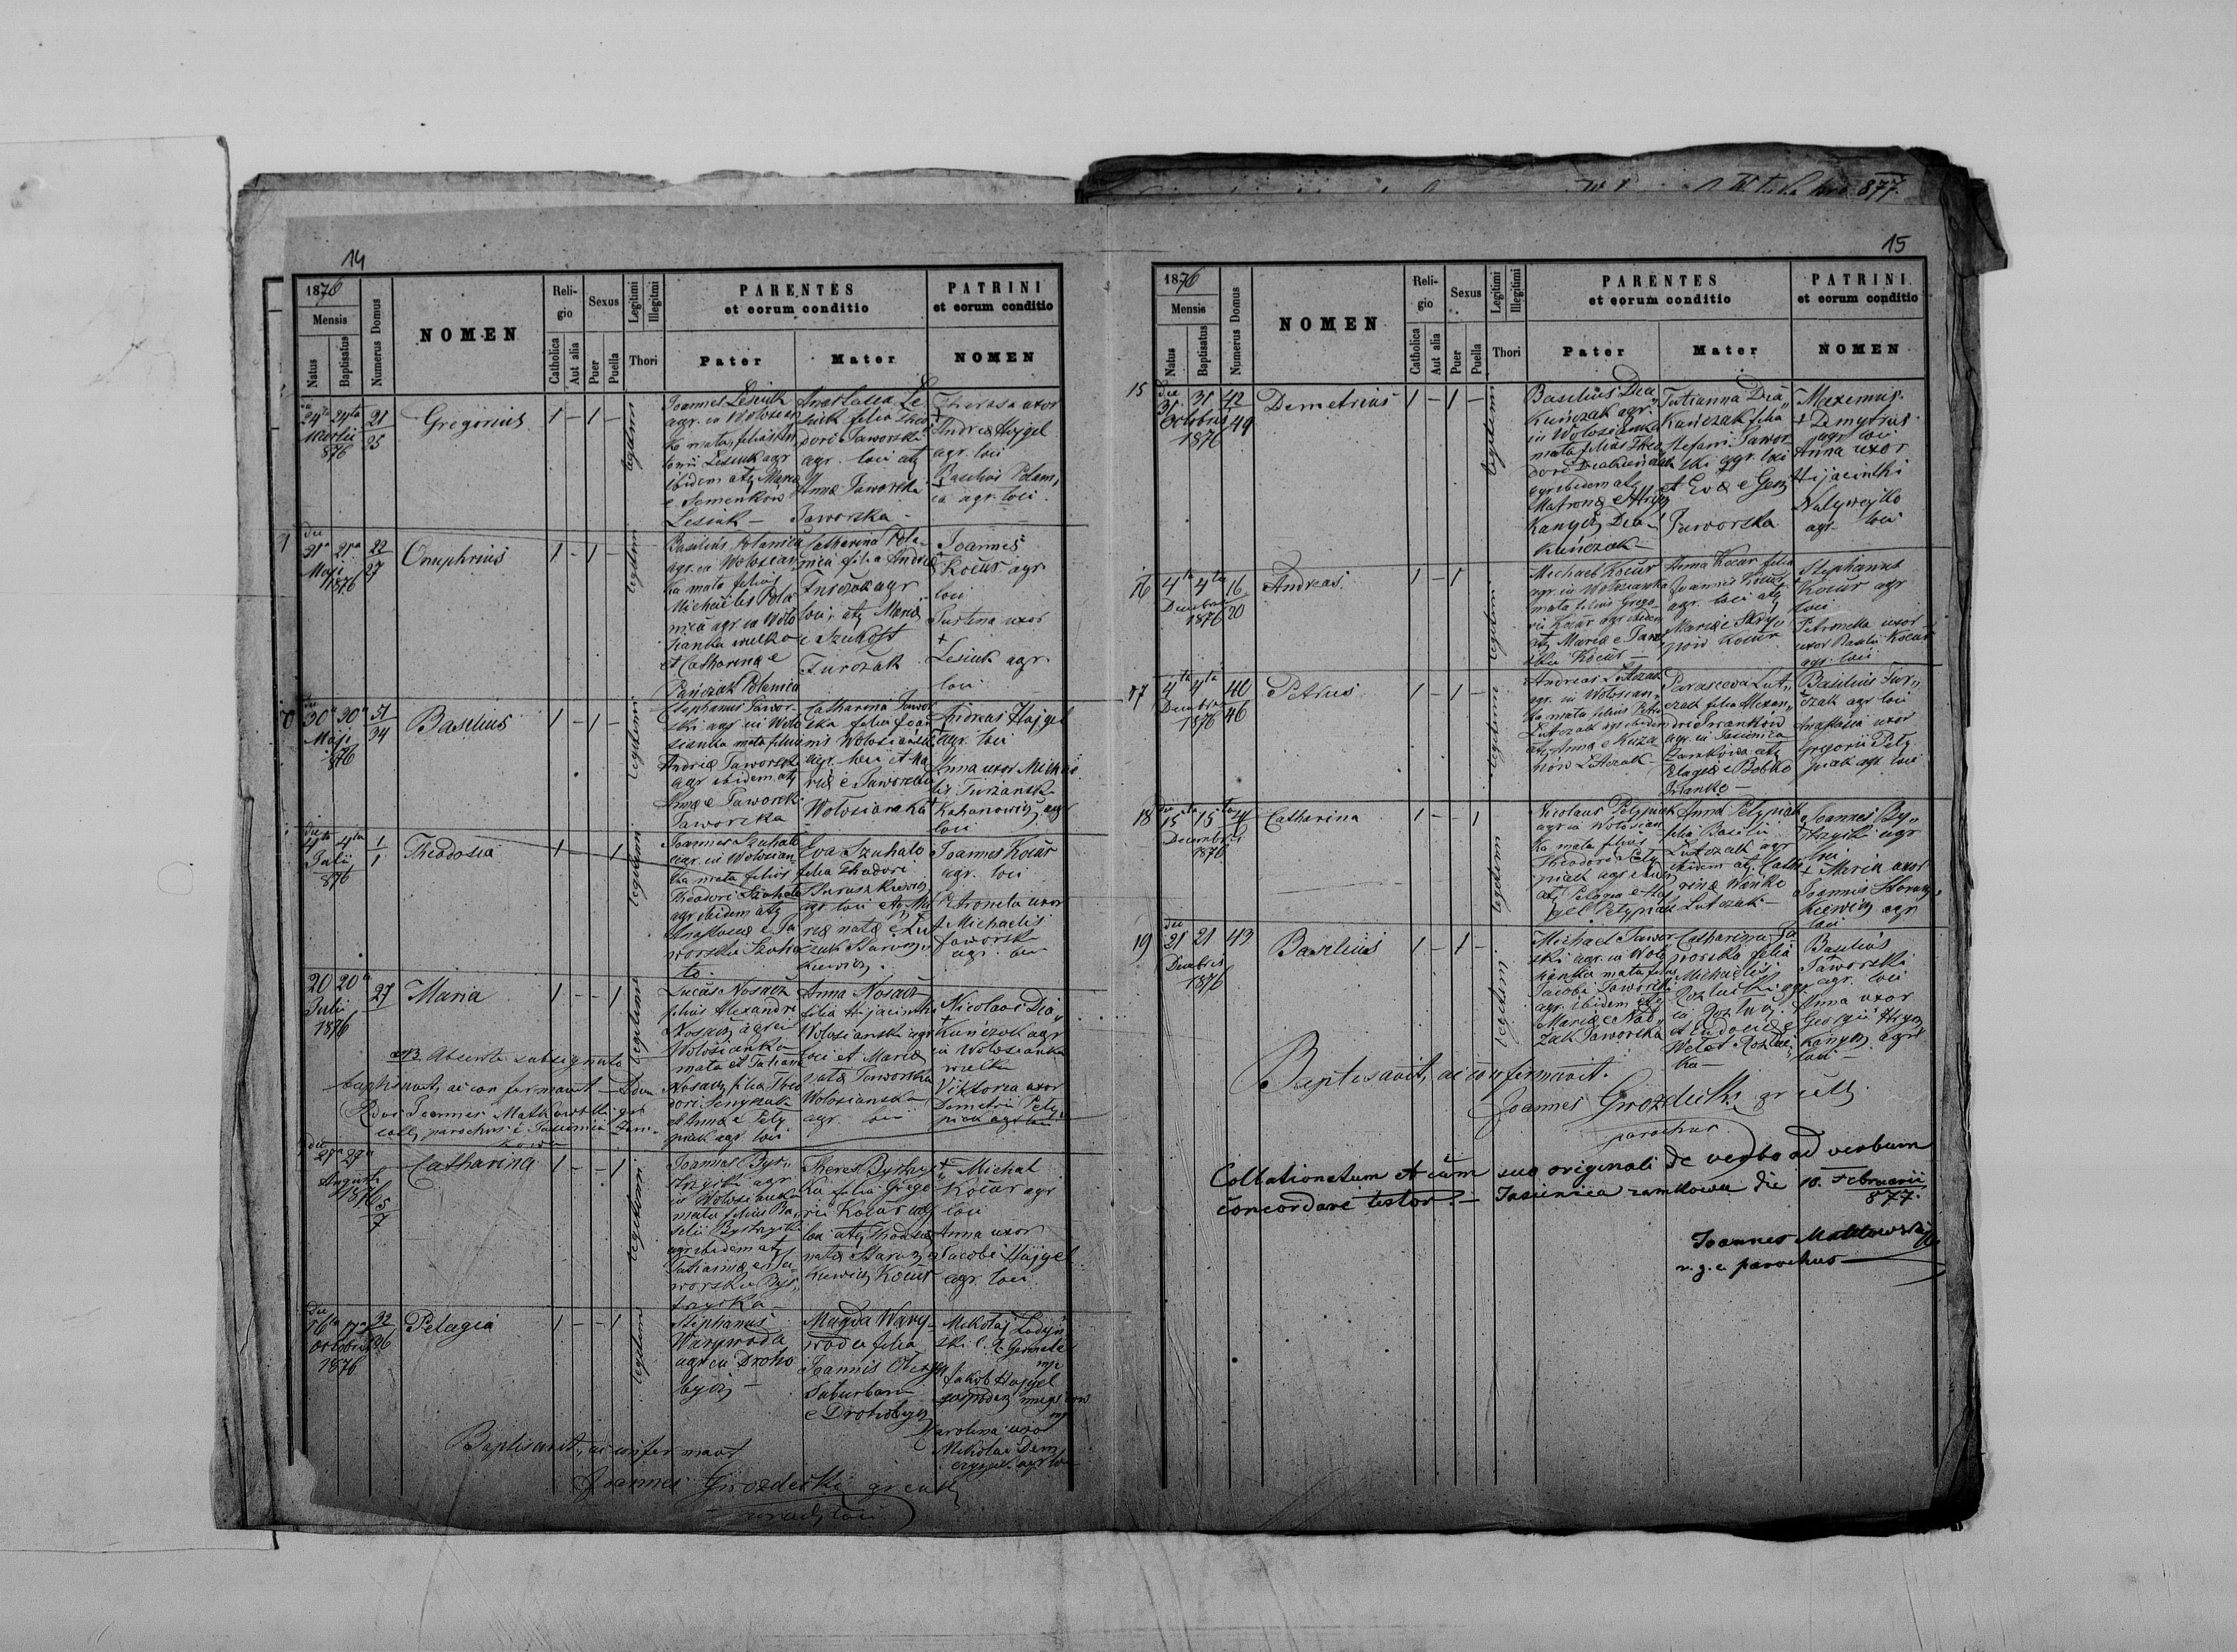 14
1876
Mensis
Natus
Baptisatus
Numerus Domus
NOMEN
Reli-
gio
Catholica
Aut alia
Sexus
Puer
Puella
Legitimi
Illegitmi
Thori
PARENTES
et eorum conditio
Pater
Mater
PATRINI
et eorum conditio
NOMEN
24ta 24ta 21
Martii 25
876
Gregorius
1 - 1 -
legitimi
Joannes Lesiuk
agr. in Wolosian
ka mata filius An
tonii Lesiuk agr
ibidem atq Maria
e Semenkow
Lesiuk —
Anastasia Le
siuk filia Theo
dori Jaworski
agr. loci atq
Anna Jaworska
Jaworska -
Therasa uxor
Andreæ Hajgel
agr. loci
Basilius Polani,
ca agr. loci.
die
21a 21a 22
Maji 27
1876
Onuphrius
1 - 1 -
legitimi
Basilius Polanica
agr. in Wolosian
ka mata filius
Michaelis Pola
nica agr. in Wolo
sianka welka
et Catharina e
Pańczak Polanica
Catharina Pola-
nica filia Andreæ
Turczak agr
loci, atq Maria
e Szukost
Turczak
Joannes
Kocur agr
loci
Justina uxor
Lesiuk agr.
loci
30a 30a 51
Maji 34
876
Basilius
1 - 1 -
legitimi
Stephanus Jawor-
ski agr in Wolo
sianka mata filius
Andreæ Jaworski
agr ibidem atq
Anna e Jaworsk
Jaworska
Catharina Jawor
ska filia Joan
nis Wolosiański
agr. loci et Ma
ria e Jaworska
Wolosianska
Andreas Hajgel
agr. loci
Anna uxor Michae
lis Turzansk
Kahanowicz agr
loci
die
4ta 4ta 1
Julii 1
876
Theodosia
1 - - 1
legitimi
Joannes Szuhato
agr. in Wolosian-
ka mata filius
Theodori Szuhato
agr ibidem atq
Anastasia e Ja
worska Szuha
to.
Eva Szuhato
filia Theodori
Staruszkiewicz
agr loci atq Ma
ria nata e Lut
czak Starusz,
kiewicz.
Joannes Kocur
agr. loci
Petronela uxor
Michaelis
Jaworsk
agr. loci
20 20a 27
Julii
1876
Maria
1 - - 1
legitimi
Lucas Nosacz
filius Alexandri
Nosacz agr in
Wolosianka
mata et Tatiana
Nosacz filia Theo
dori Senyszak
et Anna e Pety
piak agr loci
Anna Nosacz
filia Hijacinthi
Wolosianski agr
loci et Maria
nata Jaworska
Wolosianska
agr. loci
Nicolaus Dia,,
kuńczak agr
in Wolosianka
wielka
Viktoria uxor
Demetrii Pety
piak agr loci
NB. Absente subsignato
baptisavit, ac confirmavit
Rdus Joannes Matkowski gr
cath, parochus e Jasienica Zam-
kowa
die
27a 27a
Augusti
1876 5
7
Catharina
1 - - 1
legitimi
Joannes Bys,,
trzycki agr
in Wolosianka
mata filius Ba,
silii Bystrzycki
agr ibidem atq
Tatiana e Ja
worska Bys,,
trzycka
Theres Bystrzyc
ka filia Grego
rii Kocur agr
loci atq Theodosia
nata Starusz
kiewicz Kocur
Michal
Kocur agr
loci
Anna uxor
Jacobi Hajgel
agr. loci
die
16ta 17a 32
Octobris 36
1876
Pelagia
1 - - 1
legitimi
Stephanus
Warywoda
agr in Droho
bycz —
Magda Wary-
woda filia
Joannis
Suburbana
e Drohobycz
Mikolaj Ladyń
ski
Jakob Hajgel
gospodarz
Karolina uxor
Mikolai Dem
agr loci
Baptisavit, ac confirmavit
Joannes Gwozdecki gr cath
paroch, loci
15
1876
Mensis
Natus
Baptisatus
Numerus Domus
NOMEN
Reli-
gio
Catholica
Aut alia
Sexus
Puer
Puella
Legitimi
Illegitimi
Thori
PARENTES
et eorum conditio
Pater
Mater
PATRINI
et eorum conditio
NOMEN
15
die
31. 31 42
Octobris 49
1876
Demetrius
1 - 1 -
legitimi
Basilius Dia
kuńczak agr.
in Wolosianka
mata filius Theo
dori Diakuńczak
agr ibidem atq
Matrona e Hryn
kanycz Dia-
kuńczak
Tatianna Dia,,
kuńczak filia
Stefani Jawor
ski agr. loci
et Eva e Gen
Jaworska
Maxemus
Demytrus
agr loci
Anna uxor
Hijacinthi
Nalywajko
agr. loci
16
4ta 4ta 16
Decembris 20
1876
Andreas
1 - 1
legitimi
Michael Kocur
agr. in Wolosianka
mata filius Grego
rii Kocur agr ibidem
atq Maria e Jawor
ska Kocur —
Anna Kocur filia
Joannis Kocur
agr. loci atq
Maria e Stryj
pow Kocur
Stephanus
Kocur agr
loci
Petronela uxor
uxor Basilii Kocur
agr. loci
17
4ta 4ta 40
Decembris 46
1876
Petrus
1 - 1 -
legitimi
Andreas Lutczak
agr. in Wolosian-
ka mata filius Petri
Lutczak agr ibidem
atq Anna e Kuza
now Lutczak-
Parasceva Lut,,
czak filia Alexan,,
dri Iwankow
agr. in Jasienica
Zamkowa atq
Pelagia e Bobko
Iwanko —
Basilius Tur,,
czak agr loci
Anastasia uxor
Gregorii Pety
piak agr loci
18
die
15ta 15ta 4
Decembris
1876
Catharina
1 - - 1
legitimi
Nicolaus Petypiak
agr in Wolosian
ka mata filius
Theodori Pety
piak agr loci
atq Pelagia e Haj
gel Petypiak
Anna Petypiak
filia Basilii
Lutczak agr
ibidem atq Catha
rina Wańko
Lutczak —
Joannes By,,
strzycki agr
loci
Maria uxor
Joannis Starusz,
kiewicz agr
loci
19
die
21 21 43
Decembris
1876
Basilius
1 - 1 -
legitimi
Michael Jawor
ski agr. in Wolo
sianka mata filius
Jacobi Jaworski
agr. ibidem atq
Maria e Nad
zak Jaworska
Catharina Ja
worska filia
Michaelis
Rozlucki agr
in Rozlucz
et Eudocia e
Rozluc
ka —
Basilius
Jaworski
agr. loci
Anna uxor
Georgii Hryn
kanycz agr
loci —
Baptisavit, ac confirmavit.
Joannes Gwozdecki gr cath
parochus
Collationatum et cum suo originali de verbo ad verbum
concordare testor. — Jasienica zamkowa die 10. Februarii
877.
Joannes Matkowski
r. g. c. parochus